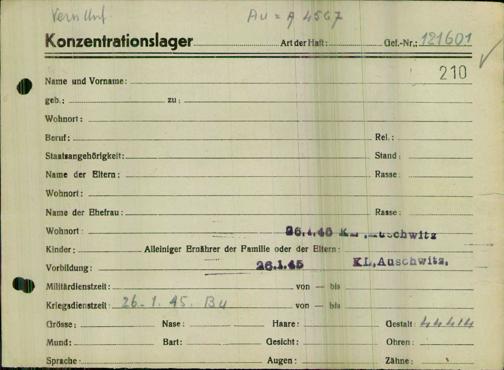 Au = A 4567
Konzentrationslager Art der Haft: Gef.-Nr.: 121601
210
Name und Vorname:
geb.: zu:
Wohnort:
Beruf: Rel.:
Staatsangehörigkeit: Stand:
Name der Eltern: Rasse:
Wohnort:
Name der Ehefrau: Rasse:
Wohnort 26.1.45 KL, Auschwitz
Kinder: Alleiniger Ernährer der Familie oder der Eltern:
Vorbildung: 26.1.45 KL, Auschwitz.
Militärdienstzeit: von — bis
Kriegsdienstzeit: 26-1.45. Bu von — bis
Grösse: Nase: Haare: Gestalt:
Mund: Bart: Gesicht: Ohren:
Sprache Augen: Zähne: